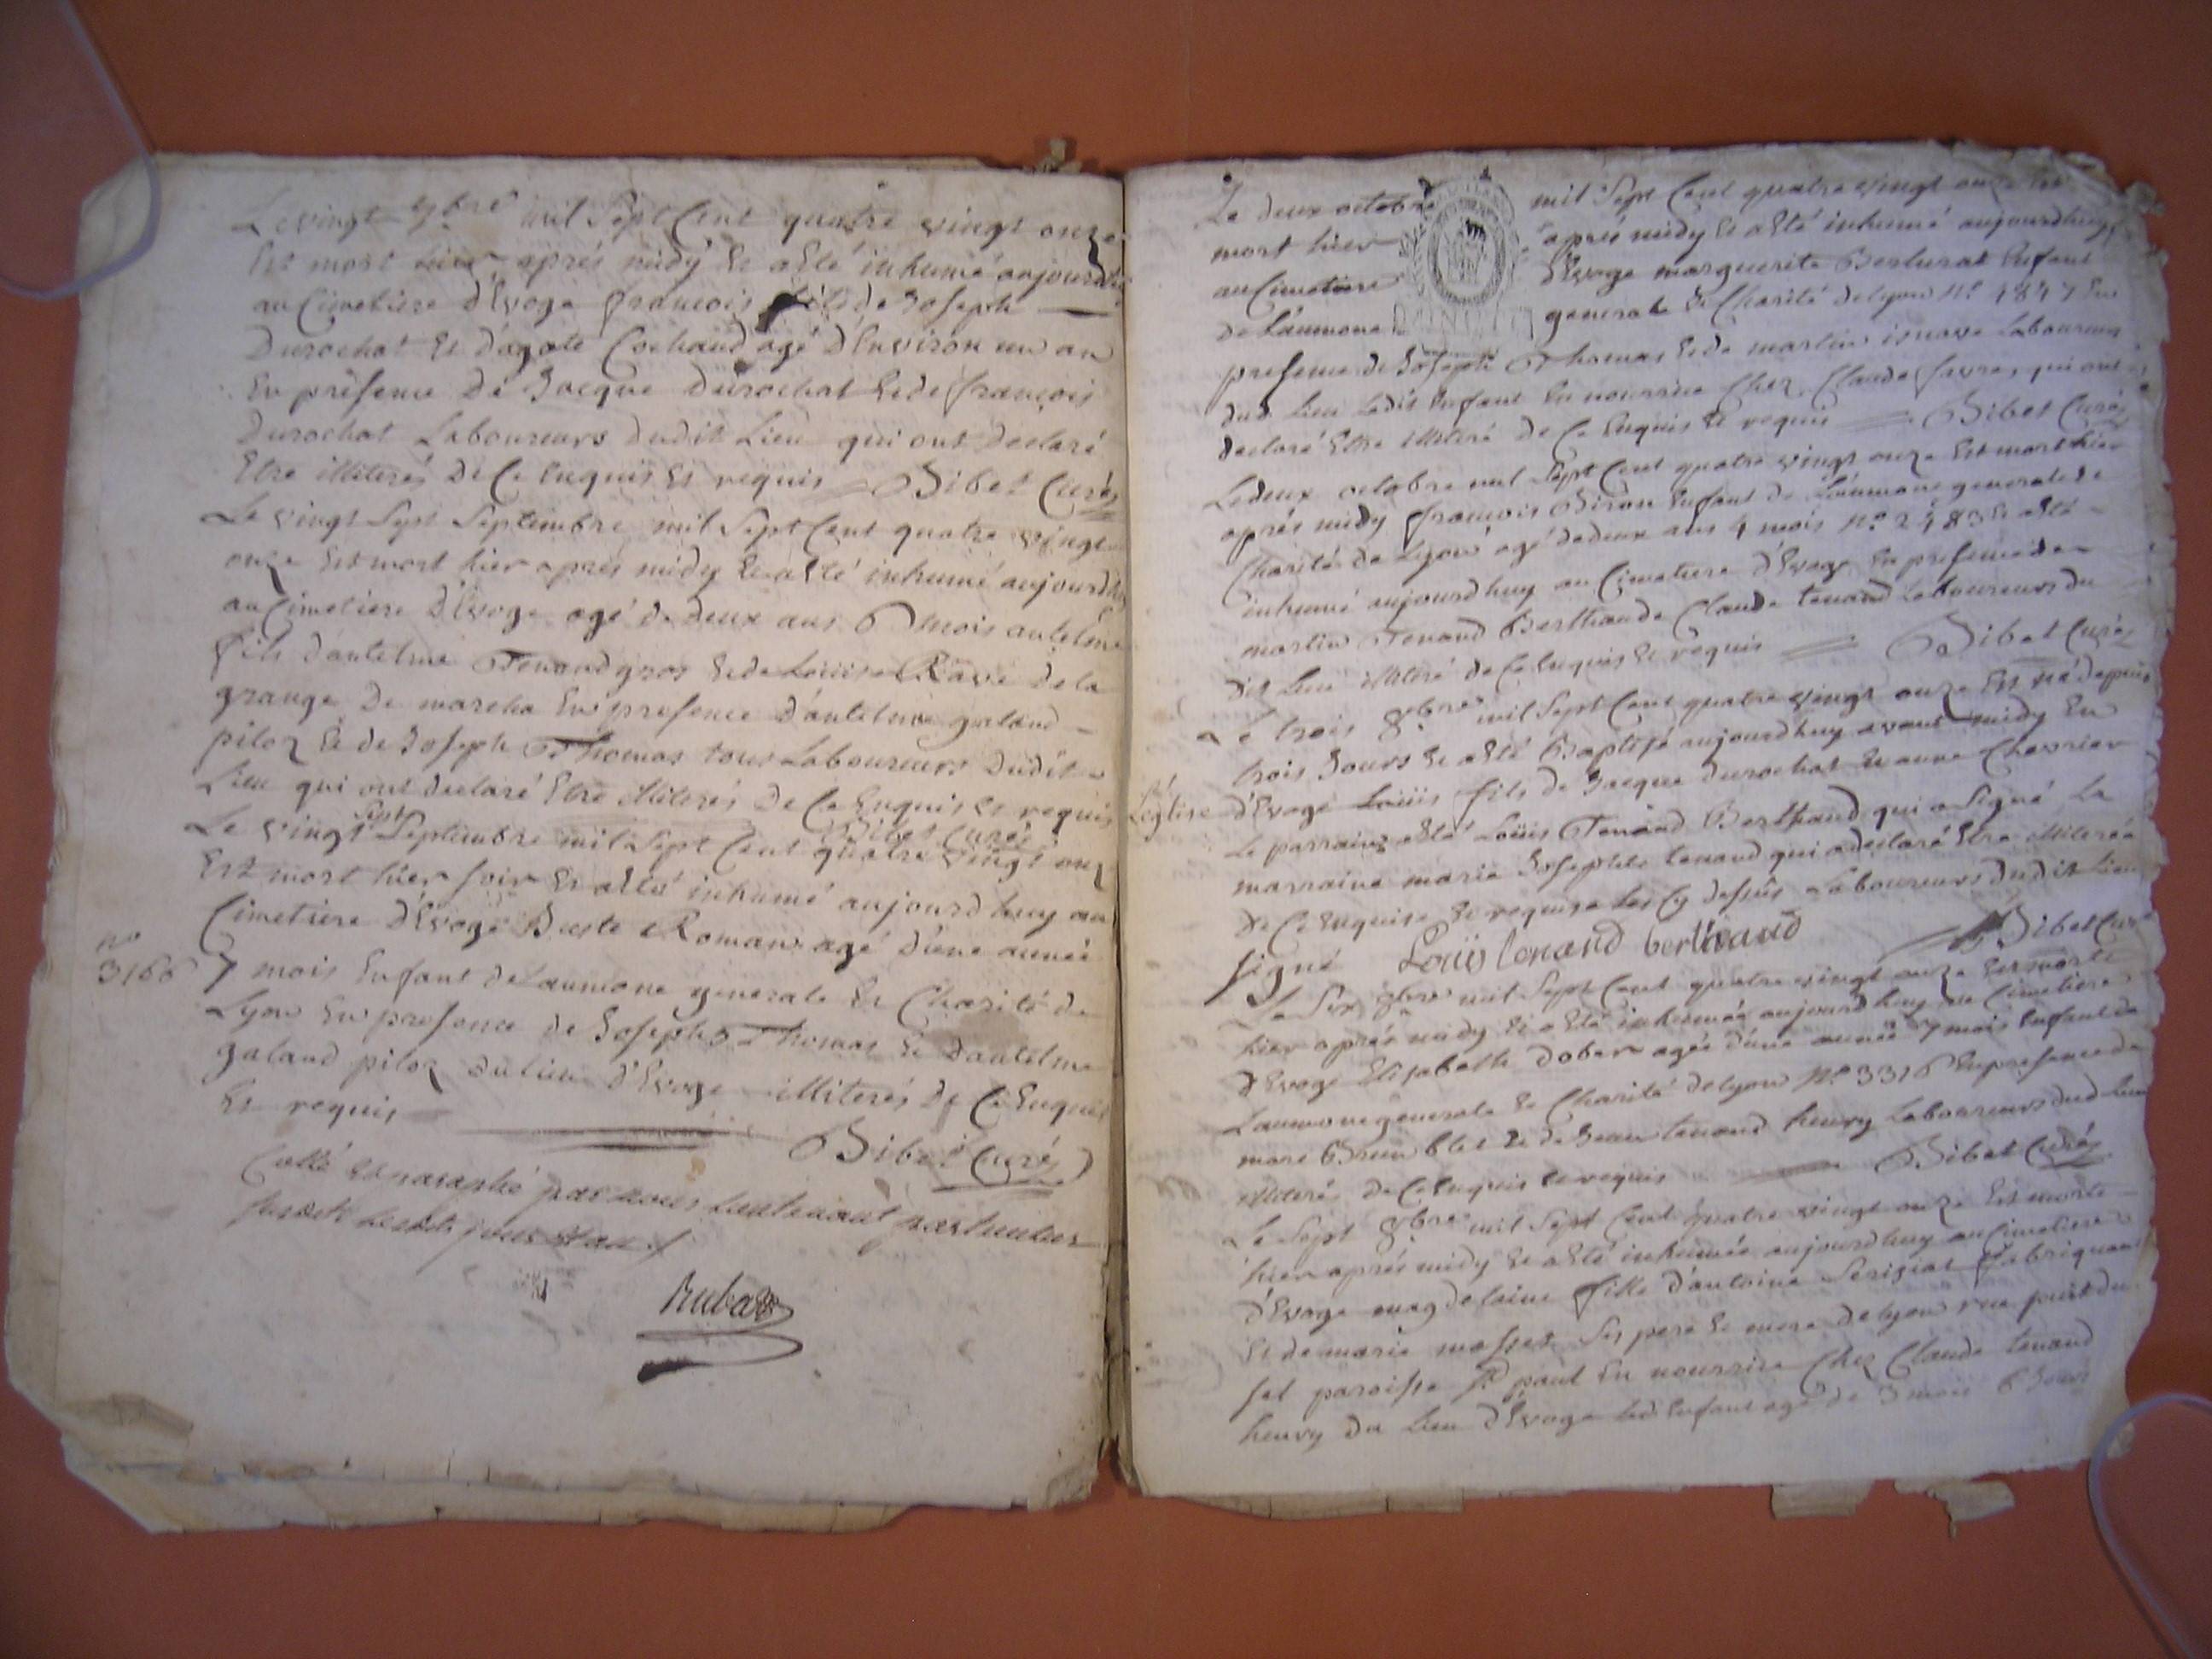 Le vingt 7bre mil Sept Cent quatre vingt onze
Est mort hier aprés midy Et a Eté inhumé aujourdhuy
au Cimetiere d'Evoge francois fils de Joseph
Durochat Et d'agate Cochand agé d'Environ un an
En présence De Jacque Durochat Et de françois
Durochat Laboureurs dudit Lieu qui ont Declaré
Etre illiterés De Ce Enquis Et requis Bibet Curé
Le vingt Sept Septembre mil Sept Cent quatre vingt
onze Est mort hier aprés midy Et a Eté inhumé aujourdhuy
au Cimetiere d'Evoge agé de deux ans 6 mois antelme
fils d'antelme Tenand gros Et de Louise Ravé de la
grange De marcha En presence d'antelme galand
piloz Et de Joseph Thomas tous Laboureurs dudit
Lieu qui ont declaré Etre illiterés De Ce Enquis Et requis
Bibet Curé
Le vingt Sept Septembre mil Sept Cent quatre vingt onz
Est mort hier soir Et a Eté inhumé aujourdhuy au
Cimetiere d'Evoge Juste Roman agé d'une année
no 3166 7 mois Enfant de Laumone generale Et Charité de
Lyon En presence de Joseph Thomas Et Dantelme
galand piloz du lieu d'Evoge illiterés De Ce Enquis
Et requis
Bibet Curé
Cotté Et paraphé par nous Lieutenant particulier
Rubat
Le deux octobre mil Sept Cent quatre vingt onze Est
mort hier aprés midy Et a Eté inhumé aujourdhuy
au Cimetiere d'Evoge marguerite Enfant
de Laumone generale Et Charité de lyon No 1847 En
presence de Joseph Thomas Et de martin Laboureurs
dud. Lieu Ledit Enfant En nourrice Chez Claude favre, qui ont
declaré Etre illiteré De Ce Enquis Et requis Bibet Curé
Le deux octobre mil Sept Cent quatre vingt onze Est mort hier
aprés midy francois Biron Enfant de Laumone generale Et
Charité de Lyon agé de deux ans 4 mois No 2483 Et a Eté
inhumé aujourdhuy au Cimetiere d'Evoge En presence de
martin Tenand Berthand Claude tenand Laboureurs du
dit Lieu illiteré de Ce Enquis Et requis Bibet Curé
Le trois 8bre mil Sept Cent quatre vingt onze Est né depuis
trois Jours Et a Eté Baptisé aujourdhuy avant midy En
Leglise d'Evoge Loüis fils de Jacque durochat Et anne Chevrier
Le parrain a Eté Loüis Tenand Berthand qui a Signé La
marraine marie Josephte tenand qui a declaré Etre illiterée
De Ce Enquise Et requise Les Cy dessus Laboureurs dudit Lieu
signé Loüis tenand berthand Bibet Curé
Le Six 8bre mil Sept Cent quatre vingt onze Est morte
hier aprés midy Et a Eté inhumée aujourdhuy au Cimetiere
d'Evoge Elisabeth dober agée d'une année 7 mois Enfant de
Laumone generale Et Charité de lyon No 3316 En presence de
marc Brun Et de Jean tenand henry Laboureurs dud. Lieu
illiterés de Ce Enquis Et requis Bibet Curé
Le Sept 8bre mil Sept Cent quatre vingt onze Est morte
hier aprés midy Et a Eté inhumée aujourdhuy au Cimetiere
d'Evoge magdelaine fille d'antoine Seriziat fabriquant
Et de marie Ses pere Et mere de lyon rue puit du
sel paroisse St paul En nourrice Chez Claude tenand
henry du Lieu d'Evoge Led. Enfant agé de 3 mois 6 Jours